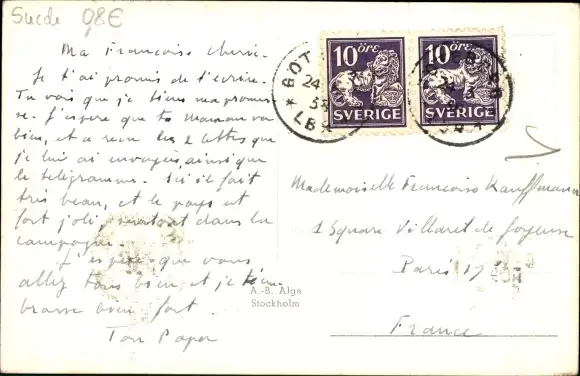 Suede 0,8€
Ma Françoise cherie.
Je t'ai promis de t'ecrire.
Tu vois que je tiens ma promes
se. J'espere que ta Maman va
bien, et a recu les 2 lettres que
je lui ai envoyées, ainsi que
le telegramme. Ici il fait
tres beau, et le pays est
fort joli, surtout dans la
campagne.
J'espere que vous
allez tous bien et je t'em-
brasse bien fort.
Ton Papa
10 öre
SVERIGE
10 öre
SVERIGE
GÖT
24
3
LBR
Mademoiselle Françoise Kauffmann
1 Square Villaret de Joyeuse
Paris 17
France
A.-B. Alga
Stockholm